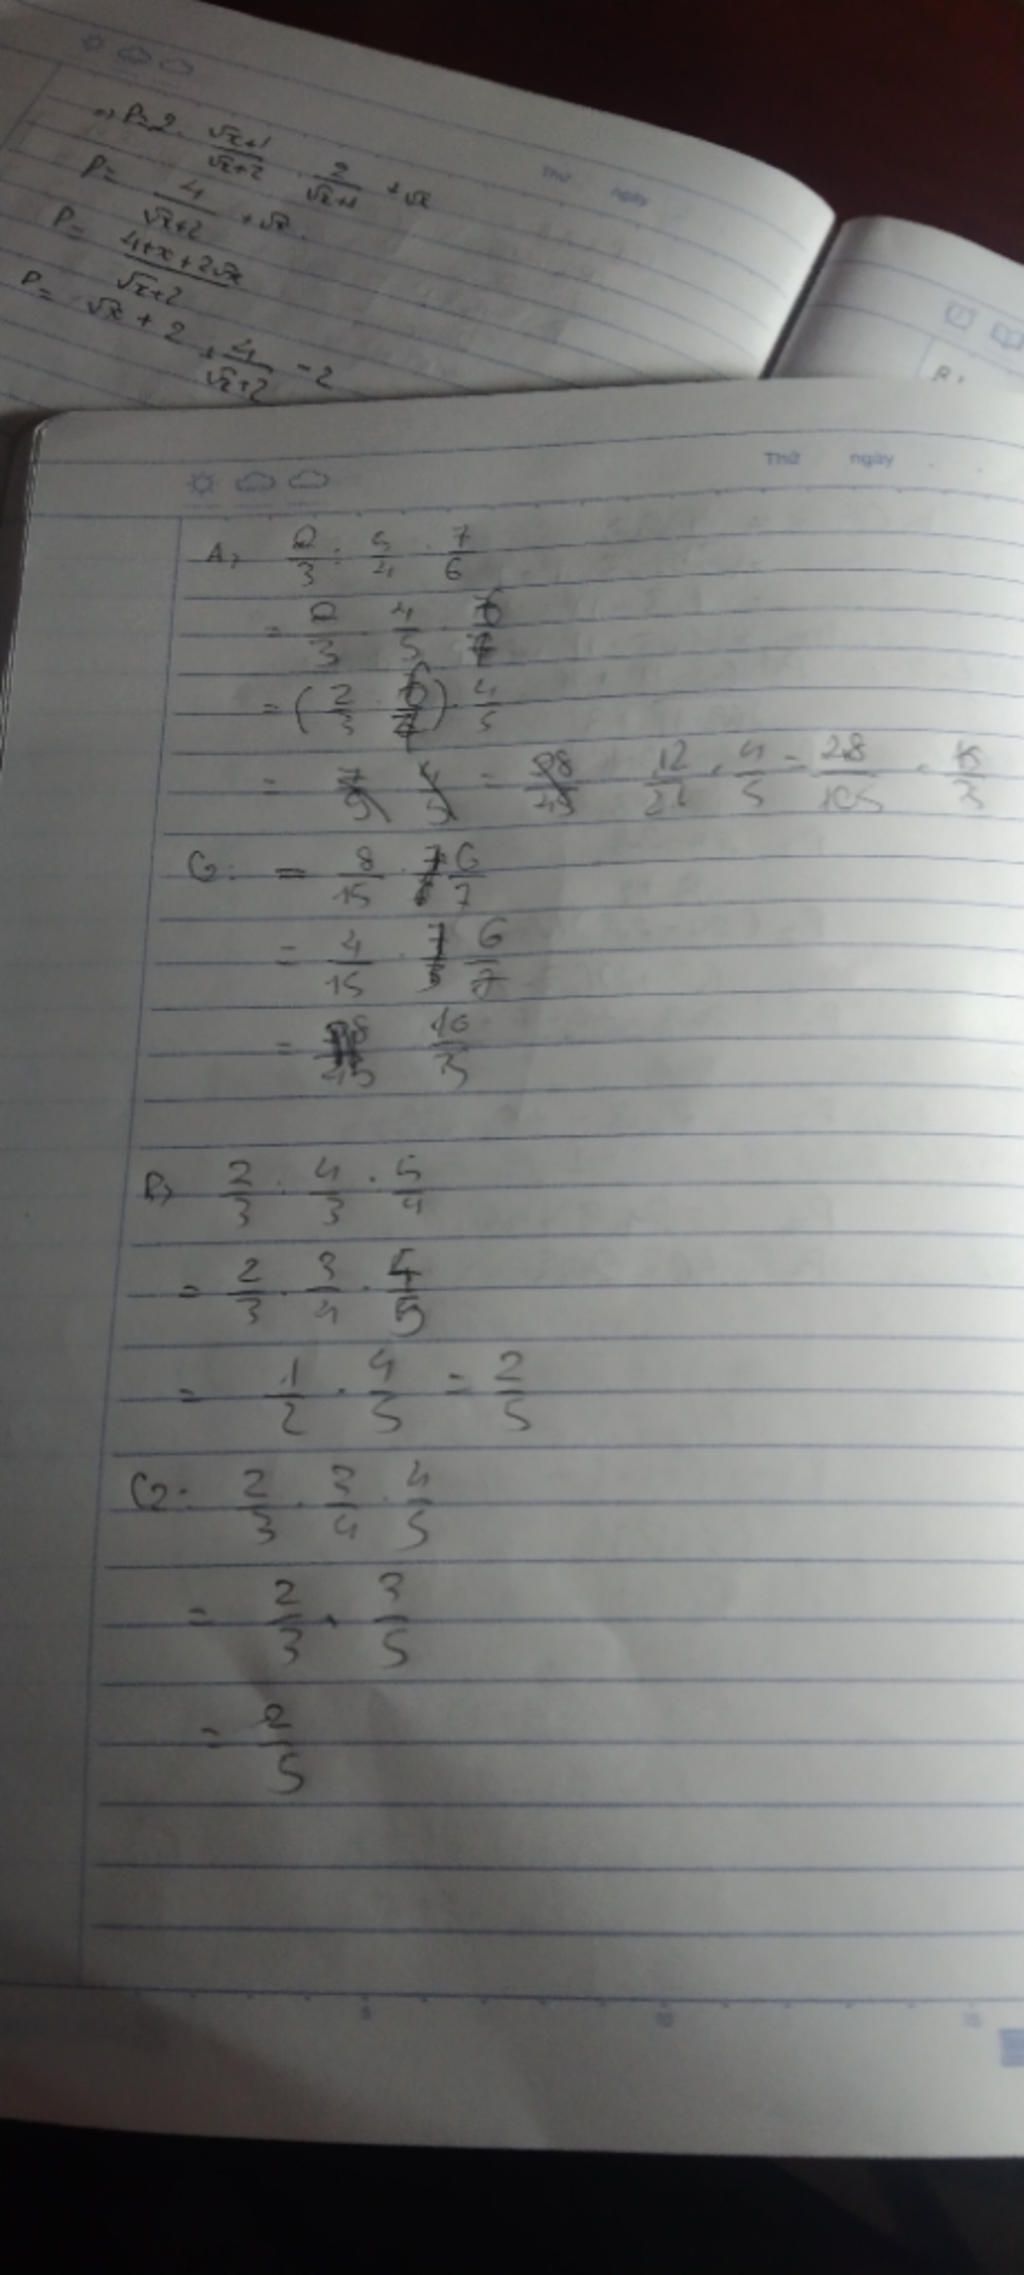 => P = 2 . (√x+1)/(√x+2) . 2/(√x+1) + √x
P = 4/(√x+2) + √x
P = (4+x+2√x)/(√x+2)
P = √x + 2 + 4/(√x+2) - 2
Thứ ngày
Thứ ngày
A, 2/3 : 5/4 . 7/6
= 2/3 4/5 . 6/7
= (2/3 . 6/7) . 4/5
= 7/9 4/5 = 28/45 12/21 . 4/5 = 28/105 .
C2: = 8/15 . 6/7
= 4/15 . 6/7
=
2/3 : 4/3 . 5/4
= 2/3 . 3/4 . 4/5
= 1/2 . 4/5 = 2/5
C2: 2/3 . 3/4 . 4/5
= 2/3 . 3/5
= 2/5
5 10 15